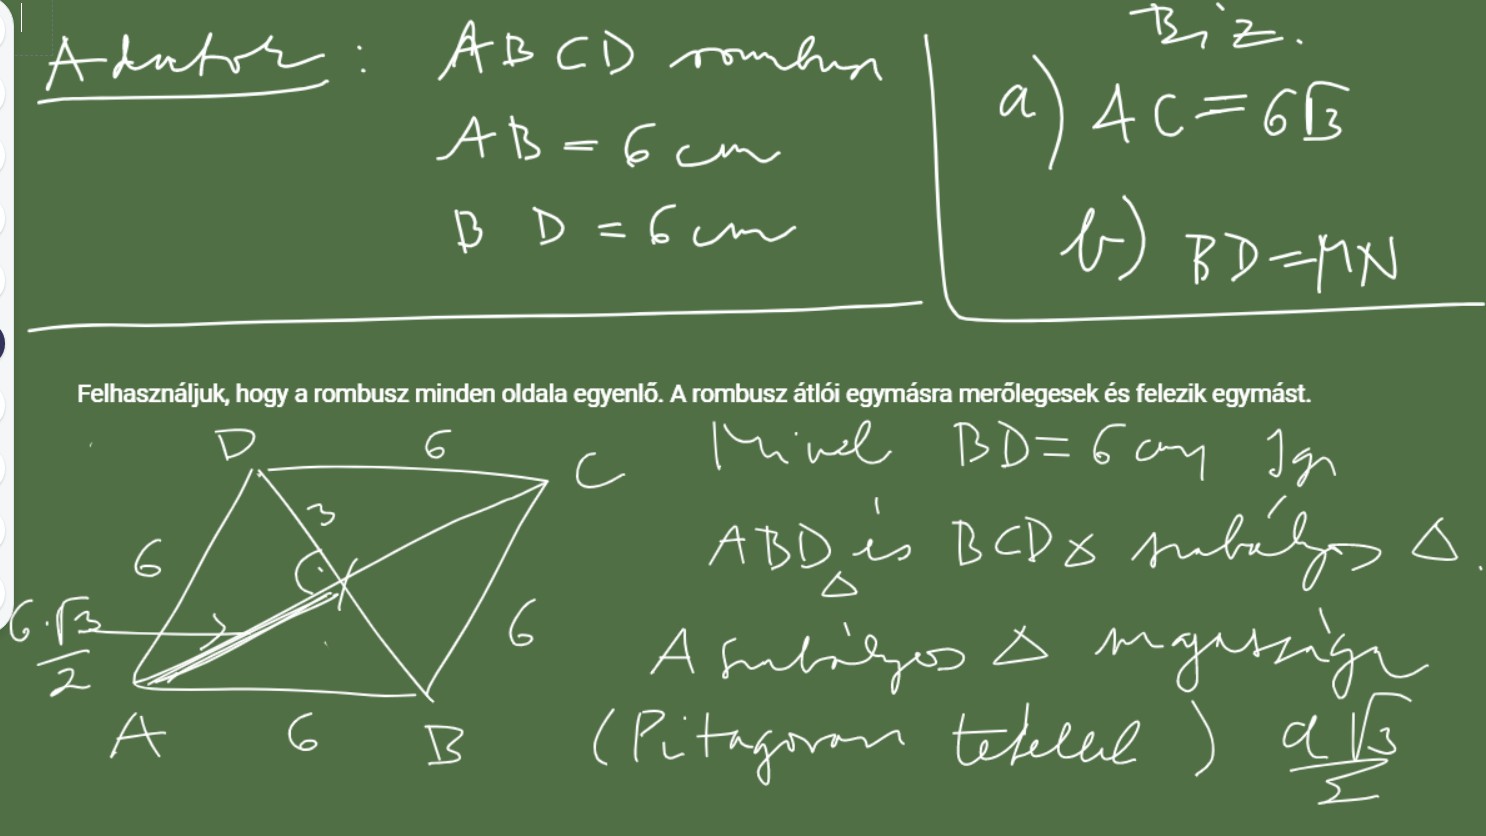 Adatok: ABCD rombusz
AB = 6 cm
BD = 6 cm
Biz.
a) AC = 6√3
b) BD = MN
Felhasználjuk, hogy a rombusz minden oldala egyenlő. A rombusz átlói egymásra merőlegesek és felezik egymást.
D 6 C
3
6
6·√3/2
6
A 6 B
Mivel BD = 6 cm Így
ABD△ és BCD△ szabályos △.
A szabályos △ magassága
(Pitagoras tétellel) a√3/2